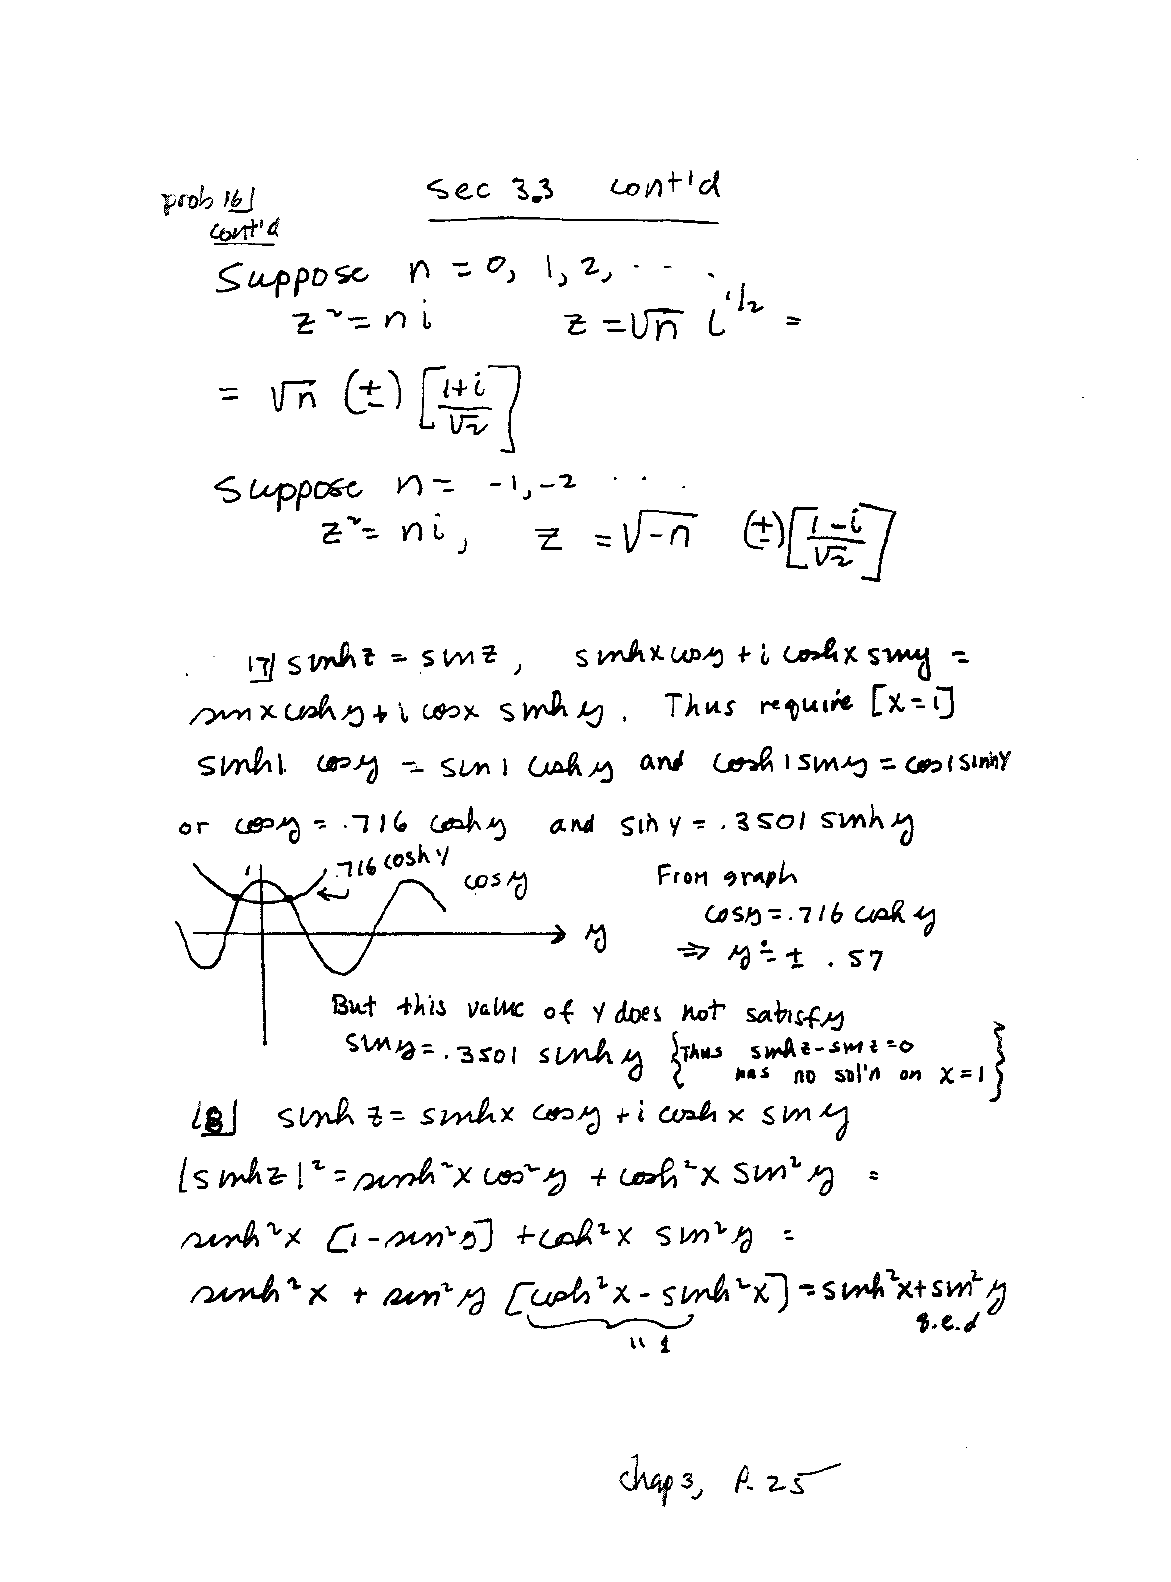 prob 16] sec 3.3 cont'd
cont'd
Suppose n = 0, 1, 2, . . .
z² = n i z = √n i^1/2 =
= √n (±) [1+i/√2]
Suppose n = -1, -2 . . .
z² = n i, z = √-n (±)[1-i/√2]
17] sinh z = sin z, sinh x cos y + i cosh x sin y =
sin x cosh y + i cos x sinh y. Thus require [x=1]
sinh 1 cos y = sin 1 cosh y and cosh 1 sin y = cos 1 sinh y
or cos y = .716 cosh y and sin y = .3501 sinh y
1 .716 cosh y cos y y
From graph
cos y = .716 cosh y
⇒ y ≐ ± .57
But this value of y does not satisfy
sin y = .3501 sinh y {Thus sinh z - sin z = 0
has no sol'n on x = 1}
18] sinh z = sinh x cos y + i cosh x sin y
|sinh z|² = sinh² x cos² y + cosh² x sin² y =
sinh² x [1 - sin² y] + cosh² x sin² y =
sinh² x + sin² y [cosh² x - sinh² x] = sinh² x + sin² y
q.e.d
" 1
chap 3, p. 25